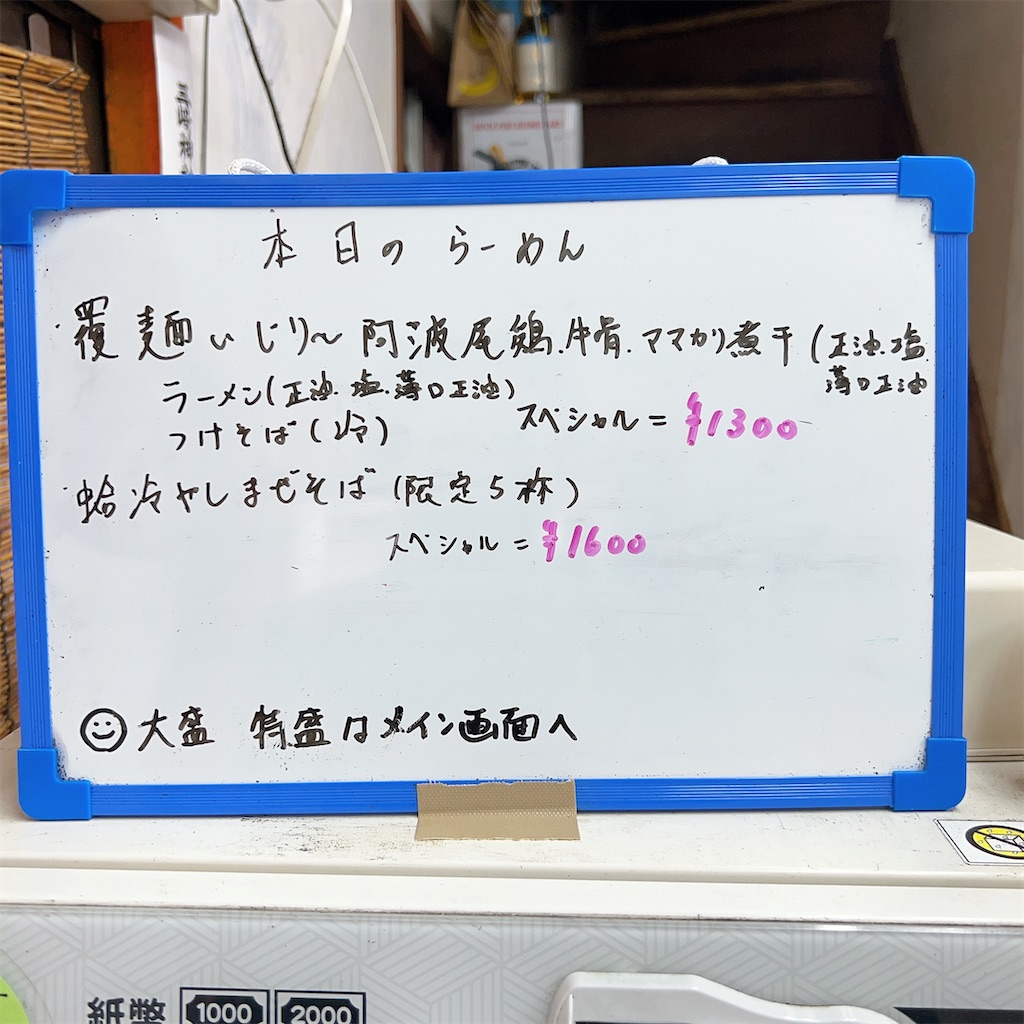 本日のらーめん
覆麺いじり～阿波尾鶏.牛骨.ママカリ煮干(正油.塩.
薄口正油
ラーメン(正油.塩.薄口正油)
つけそば(冷)
スペシャル=¥1300
蛤冷やしまぜそば(限定5杯)
スペシャル=¥1600
大盛 特盛はメイン画面へ
紙幣 1000 2000